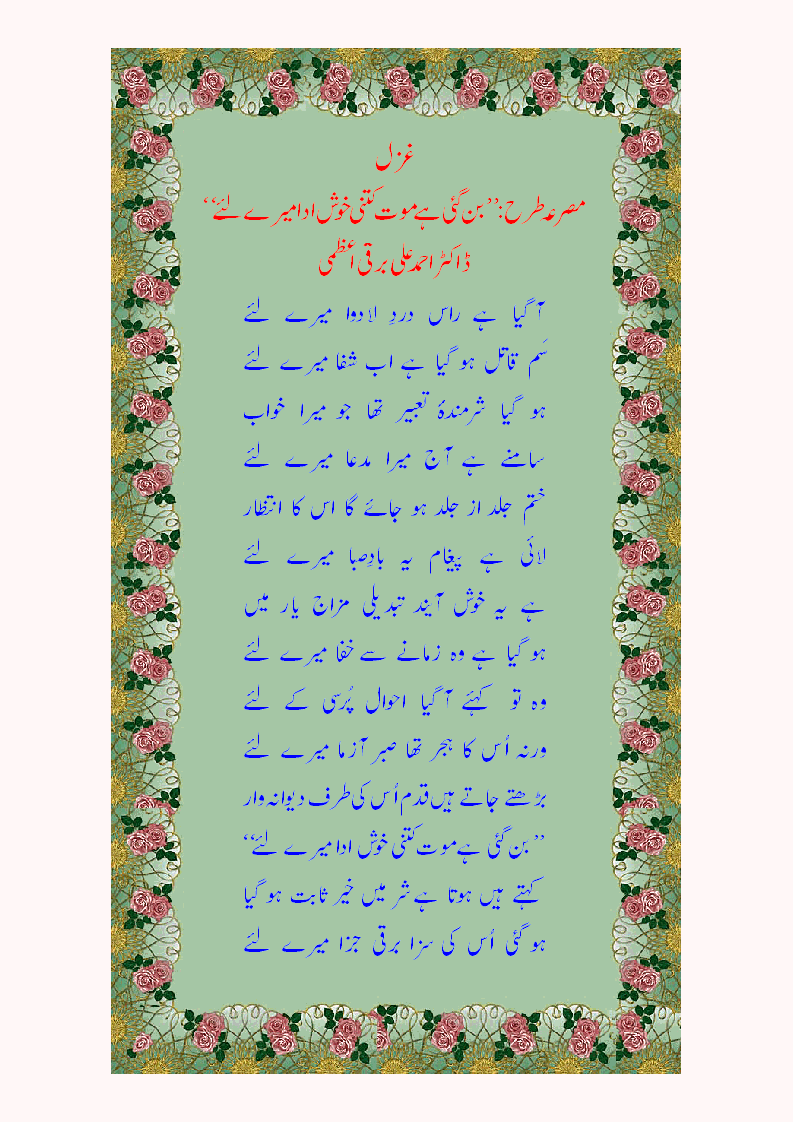 غزل
مصرعہ طرح: ’’بن گئی ہے موت کتنی خوش ادا میرے لئے‘‘
ڈاکٹر احمد علی برقی اعظمی
آ گیا ہے راس دردِ لادوا میرے لئے
سَمِ قاتل ہو گیا ہے اب شفا میرے لئے
ہو گیا شرمندۂ تعبیر تھا جو میرا خواب
سامنے ہے آج میرا مدعا میرے لئے
ختم جلد از جلد ہو جائے گا اس کا انتظار
لائی ہے پیغام یہ بادِصبا میرے لئے
ہے یہ خوش آیند تبدیلی مزاجِ یار میں
ہو گیا ہے وہ زمانے سے خفا میرے لئے
وہ تو کہئے آ گیا احوال پُرسی کے لئے
ورنہ اُس کا ہجر تھا صبر آزما میرے لئے
بڑھتے جاتے ہیں قدم اُس کی طرف دیوانہ وار
’’بن گئی ہے موت کتنی خوش ادا میرے لئے‘‘
کہتے ہیں ہوتا ہے شر میں خیر ثابت ہو گیا
ہو گئی اُس کی سزا برقی جزا میرے لئے